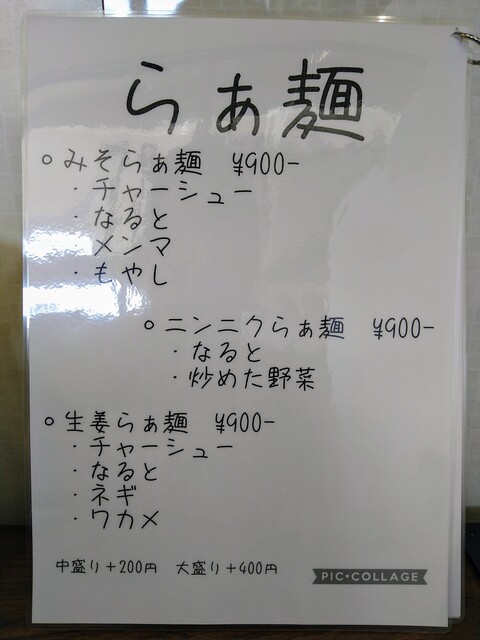 らぁ麺
○ みそらぁ麺 ¥900-
・チャーシュー
・なると
・メンマ
・もやし
○ ニンニクらぁ麺 ¥900-
・なると
・炒めた野菜
○ 生姜らぁ麺 ¥900-
・チャーシュー
・なると
・ネギ
・ワカメ
中盛り+200円 大盛り+400円
PIC・COLLAGE